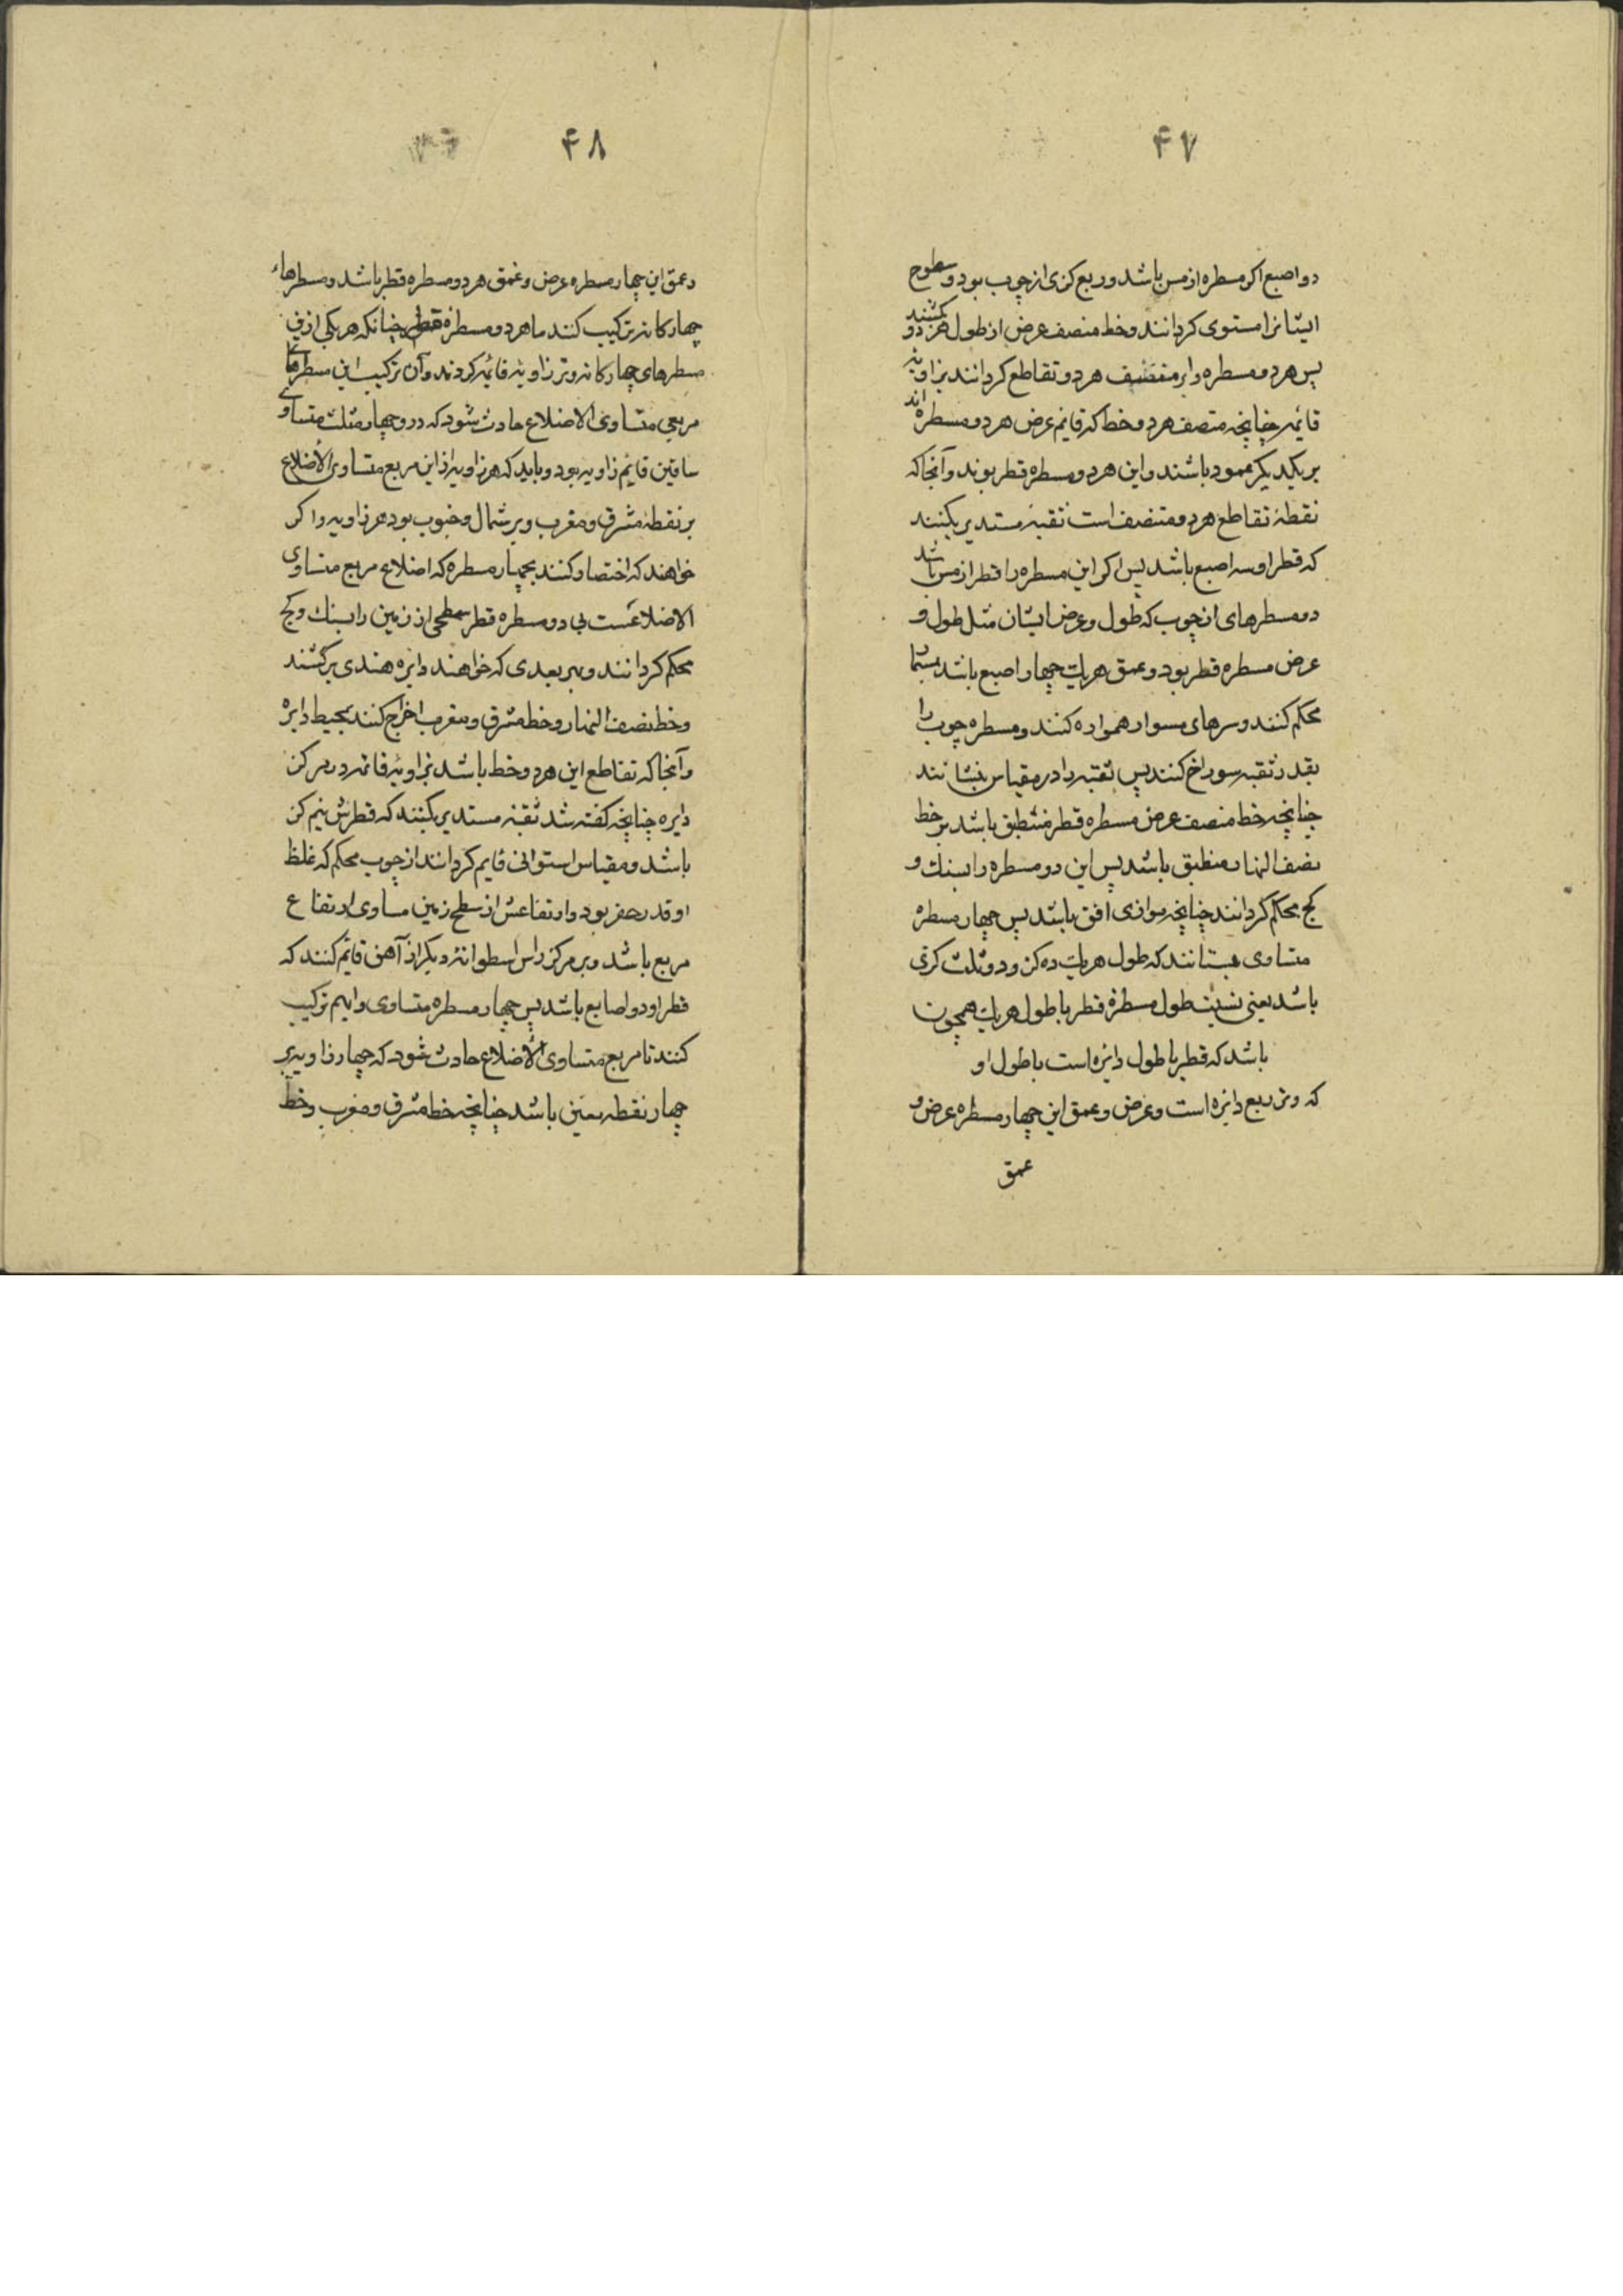 ۴۷
دو اصبع اکر مسطره از مس باشد و ربع کزی از چوب بود و سطوح
ایشانرا مستوی کردانند و خط منصف عرض از طول هر دو بکشند
پس هر دو مسطره را بر منتصف هر دو تقاطع کردانند بزاویهٔ
قائمه چنانچه منتصف هر دو خط که قایم عرض هر دو مسطره اند
بر یکدیکر عمود باشند و این هر دو مسطره قطر بوند و آنجا که
نقطهٔ تقاطع هر دو منتصف است ثقبهٔ مستدیر بکنند
که قطر او سه اصبع باشد پس اکر این مسطره را قطر از مس باشد
دو مسطرهای از چوب که طول و عرض ایشان مثل طول و
عرض مسطره قطر بود و عمق هریک چهار اصبع باشد بمسمار
محکم کنند و سرهای مسوار همواره کنند و مسطره چوب را
بقدر ثقبه سوراخ کنند پس ثقبه را در مقیاس بنشانند
چنانچه خط منصف عرض مسطره قطر منطبق باشد بر خط
نصف النهار منطبق باشد پس این دو مسطره را بسنك و
کج محکم کردانند چنانچه موازی افق باشد پس چهار مسطره
متساوی بستانند که طول هریک ده کز و دو ثلث کزی
باشد یعنی نسبت طول مسطرهٔ قطر با طول هریک همچون
باشد که قطر با طول دایره است با طول او
که وتر ربع دایره است و عرض و عمق این چهار مسطره عرض و
عمق
۴۸
و عمق این چهار مسطره عرض و عمق هر دو مسطره قطر باشد و مسطرهاء
چهارکانه ترکیب کنند با هر دو مسطره قطر چنانکه هر یکی ازین
مسطرهای چهارکانه وتر زاویهٔ قائمه کردند و آن ترکیب این مسطرها
مربعی متساوی الاضلاع حادث شود که درو چهار مثلث متساوی
ساقین قایم زاویه بود و باید که هر زاویه از این مربع متساوی الاضلاع
بر نقطهٔ مشرق و مغرب و بر شمال و جنوب بود هر زاویه و اکر
خواهند که اختصار کنند بچهار مسطره که اضلاع مربع متساوی
الاضلاعست بی دو مسطره قطر سطحی از زمین را بسنك و کج
محکم کردانند و بهر بعدی که خواهند دایره هندی برکشند
و خط نصف النهار و خط مشرق و مغرب اخراج کنند بمحیط دایره
و آنجا که تقاطع این هر دو خط باشد بزاویهٔ قائمه در مرکز
دایره چنانچه کفته شد ثقبهٔ مستدیر بکنند که قطرش نیم کز
باشد و مقیاس استوانی قایم کردانند از چوب محکم که غلظ
او قدر حفر بود و ارتفاعش از سطح زمین مساوی ارتفاع
مربع باشد و بر مرکز راس اسطوانهٔ دیکر از آهن قایم کنند که
قطر او دو اصابع باشد پس چهار مسطره متساوی را بهم ترکیب
کنند تا مربع متساوی الاضلاع حادث شود که چهار زاویه بر
چهار نقطه معین باشد چنانچه خط مشرق و مغرب و خط